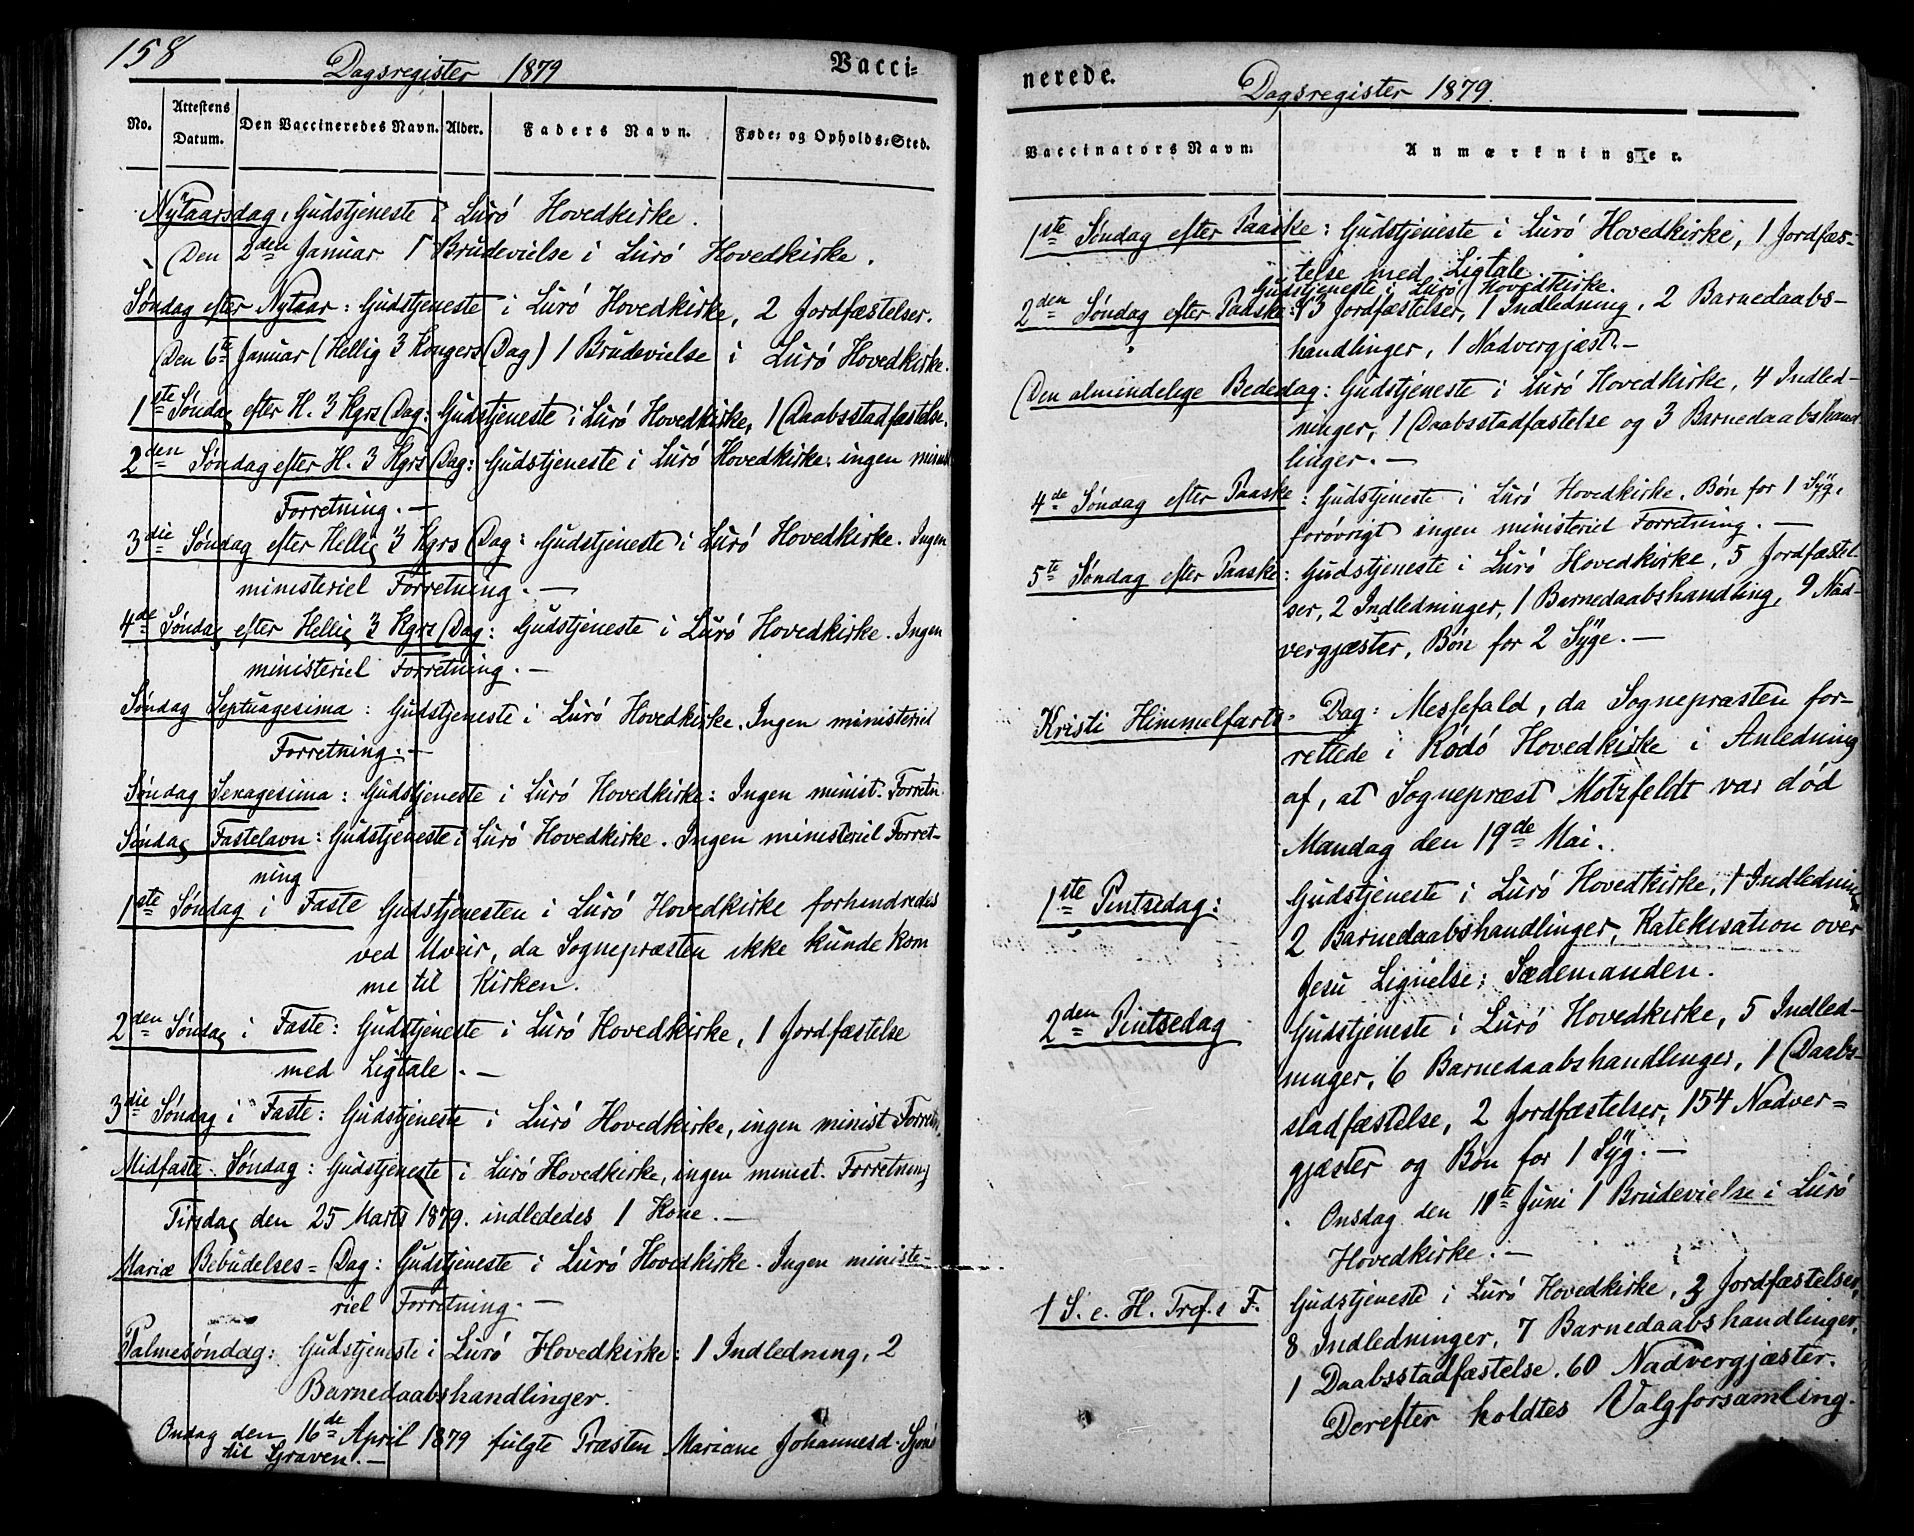 158
Dagsregister 1879
Vacci-
No.
Attestens Datum.
Den Vaccineredes Navn.
Alder.
Faders Navn.
Føde- og Opholds-Sted.
Nytaarsdag, Gudstjeneste i Lurö Hovedkirke.
Den 2den Januar 1 Brudevielse i Lurö Hovedkirke.
Søndag efter Nytaar: Gudstjeneste i Lurö Hovedkirke, 2 Jordfæstelser.
Den 6te Januar (Hellig 3 Kongers Dag) 1 Brudevielse i Lurö Hovedkirke.
1ste Søndag efter H. 3 Kgrs Dag: Gudstjeneste i Lurö Hovedkirke, 1 Daabsstadfæstelse.
2den Søndag efter H. 3 Kgrs Dag: Gudstjeneste i Lurö Hovedkirke. ingen minist
Forretning. —
3die Søndag efter Hellig 3 Kgrs Dag: Gudstjeneste i Lurö Hovedkirke. Ingen
ministeriel Forretning. —
4de Søndag efter Hellig 3 Kgrs Dag: Gudstjeneste i Lurö Hovedkirke. Ingen
ministeriel Forretning. —
Søndag Septuagesima: Gudstjeneste i Lurö Hovedkirke. Ingen ministeriel
Forretning. —
Søndag Sexagesima: Gudstjeneste i Lurö Hovedkirke: Ingen minist. Forretn
Søndag Fastelavn: Gudstjeneste i Lurö Hovedkirke. Ingen ministeriel Forret-
ning
1ste Søndag i Faste Gudstjenesten i Lurö Hovedkirke forhindredes
ved Uveir, da Sognepræsten ikke kunde kom
me til Kirken.
2den Søndag i Faste: Gudstjeneste i Lurö Hovedkirke, 1 Jordfæstelse
med Ligtale. —
3die Søndag i Faste: Gudstjeneste i Lurö Hovedkirke, ingen minist Forretn.
Midfaste Søndag: Gudstjeneste i Lurö Hovedkirke, ingen minist. Forretning
Tirsdag den 25 Marts 1879. indlededes 1 Kone. —
Mariæ Bebudelses-Dag: Gudstjeneste i Lurö Hovedkirke. Ingen ministe-
riel Forretning. —
Palmesøndag: Gudstjeneste i Lurö Hovedkirke: 1 Indledning, 2
Barnedaabshandlinger.
Onsdag den 16de April 1879 fulgte Præsten Mariane Johannesd.
til Graven. —
nerede.
Dagsregister 1879.
Vaccinators Navn.
Anmærkninger.
1ste Søndag efter Paaske: Gudstjeneste i Lurö Hovedkirke, 1 Jordfæs-
telse med Ligtale
Gudstjeneste i Lurö Hovedkirke.
2den Søndag efter Paaske: 13 Jordfæstelser, 1 Indledning, 2 Barnedaabs-
handlinger, 1 Nadvergjæst. —
Den almindelige Bededag: Gudstjeneste i Lurö Hovedkirke, 4 Indled-
ninger, 1 Daabsstadfæstelse og 3 Barnedaabshand
linger. —
4de Søndag efter Paaske: Gudstjeneste i Lurö Hovedkirke. Bøn for 1 Syg,
forøvrigt ingen ministeriel Forretning. —
5te Søndag efter Paaske: Gudstjeneste i Lurö Hovedkirke, 5 Jordfæstel
ser, 2 Indledninger, 1 Barnedaabshandling, 9 Nad-
vergjæster, Bøn for 2 Syge. —
Kristi Himmelfarts-Dag: Messefald, da Sognepræsten for-
rettede i Rödö Hovedkirke i Anledning
af, at Sognepræst Motzfeldt var död
Mandag den 19de Mai.
1ste Pintsedag: Gudstjeneste i Lurö Hovedkirke, 1 Indledning
2 Barnedaabshandlinger, Katekisation over
Jesu Lignelse: Sædemanden.
2den Pintsedag Gudstjeneste i Lurö Hovedkirke, 5 Indled-
ninger, 6 Barnedaabshandlinger, 1 Daabs-
stadfæstelse, 2 Jordfæstelser, 154 Nadver-
gjæster og Bøn for 1 Syg. —
Onsdag den 11te Juni 1 Brudevielse i Lurö
Hovedkirke. —
1 S. e. H. Tref. s F. Gudstjeneste i Lurö Hovedkirke, 3 Jordfæstelser,
8 Indledninger, 7 Barnedaabshandlinger,
1 Daabsstadfæstelse. 60 Nadvergjæster.
Derefter holdtes Valgforsamling.